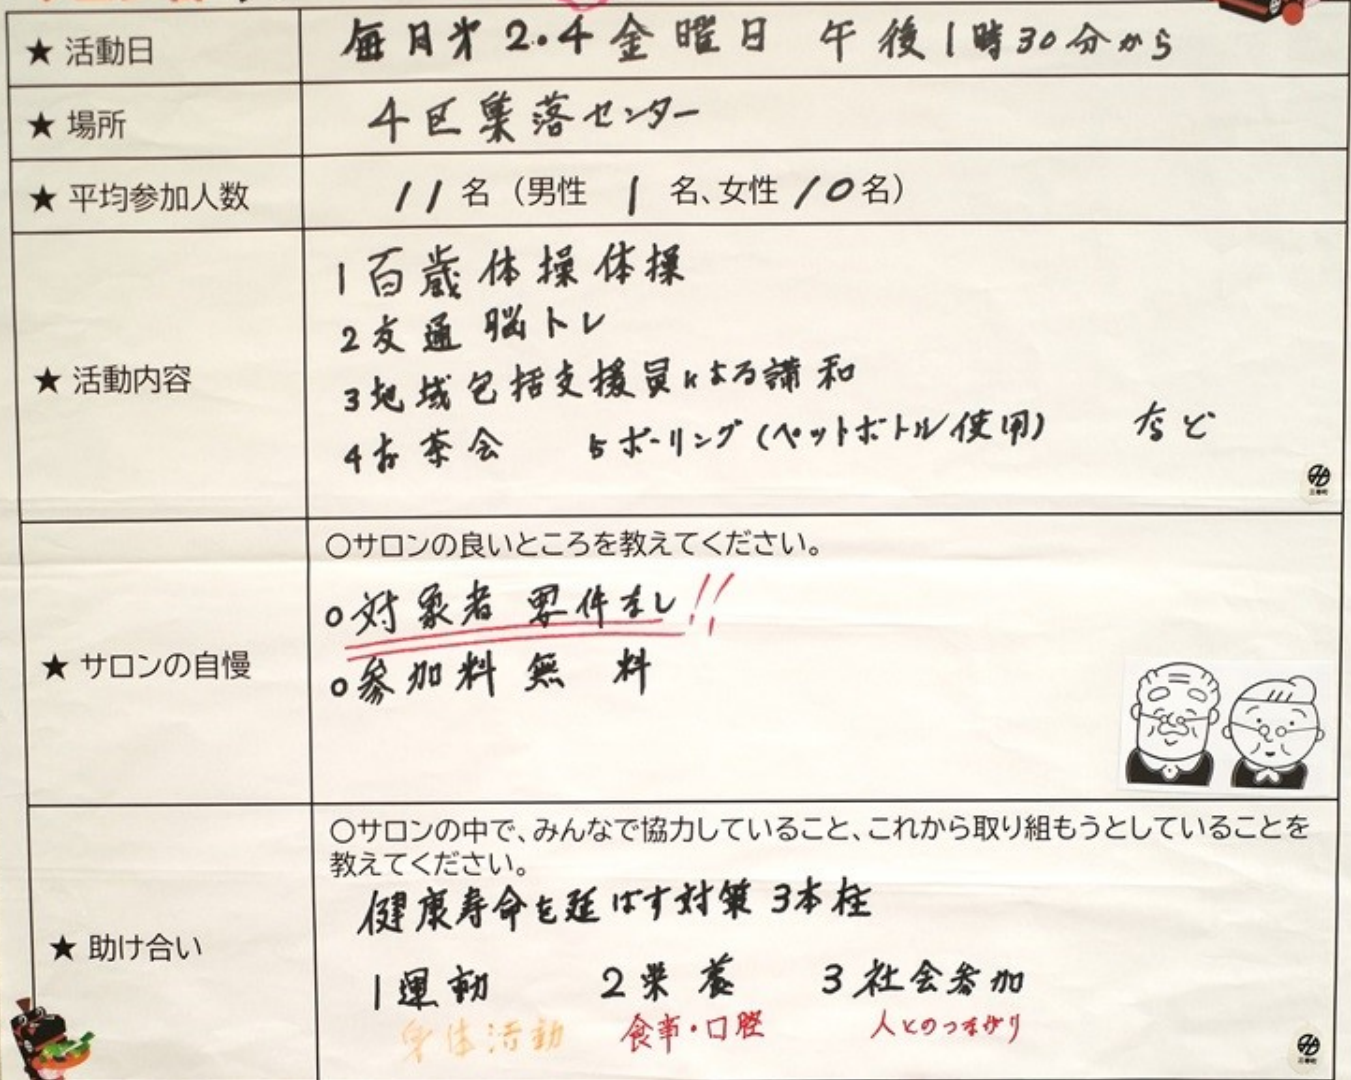 ★ 活動日
毎月第2.4金曜日 午後1時30分から
★ 場所
4区集落センター
★ 平均参加人数
11名（男性 1 名、女性 10名）
★ 活動内容
1百歳体操体操
2交通脳トレ
3地域包括支援員による講和
4お茶会 5ボーリング(ペットボトル使用) など
★ サロンの自慢
○サロンの良いところを教えてください。
○対象者 要件なし!!
○参加料無料
★ 助け合い
○サロンの中で、みんなで協力していること、これから取り組もうとしていることを
教えてください。
健康寿命を延ばす対策 3本柱
1運動 2栄養 3社会参加
身体活動 食事・口腔 人とのつながり